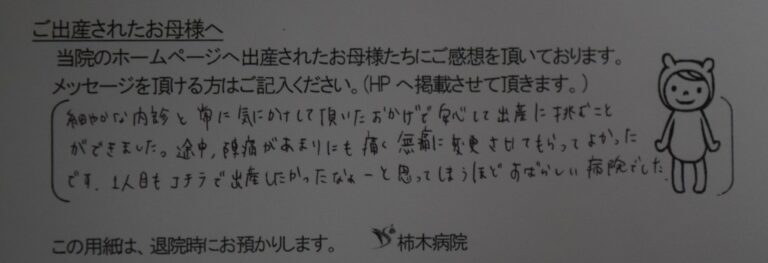 ご出産されたお母様へ
当院のホームページへ出産されたお母様たちにご感想を頂いております。
メッセージを頂ける方はご記入ください。（HPへ掲載させて頂きます。）
細やかな内診と常に気にかけして頂いたおかげで安心して出産に挑むこと
ができました。途中、陣痛があまりにも痛く無痛に変更させてもらってよかった
です。1人目もコチラで出産したかったなぁーと思ってしまうほどすばらしい病院でした。
この用紙は、退院時にお預かりします。 柿木病院